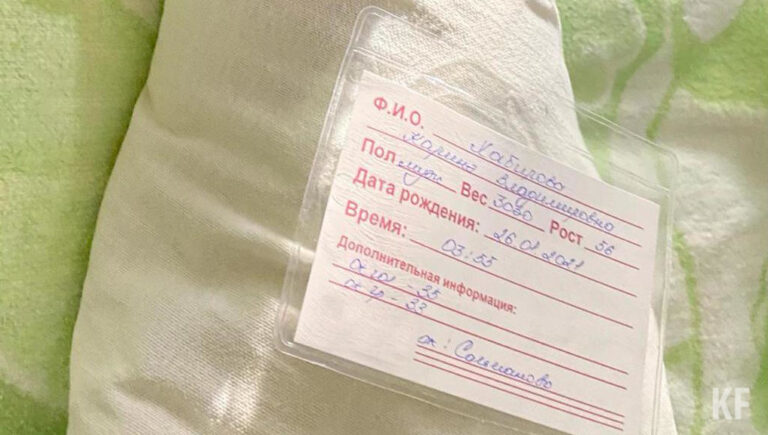 Ф.И.О. Хабирова
Карина Владимировна
Пол муж Вес 3030 Рост 56
Дата рождения: 26.01.2021
Время: 03:55
Дополнительная информация:
ок гол - 35
ок гр - 33
ак:
KF